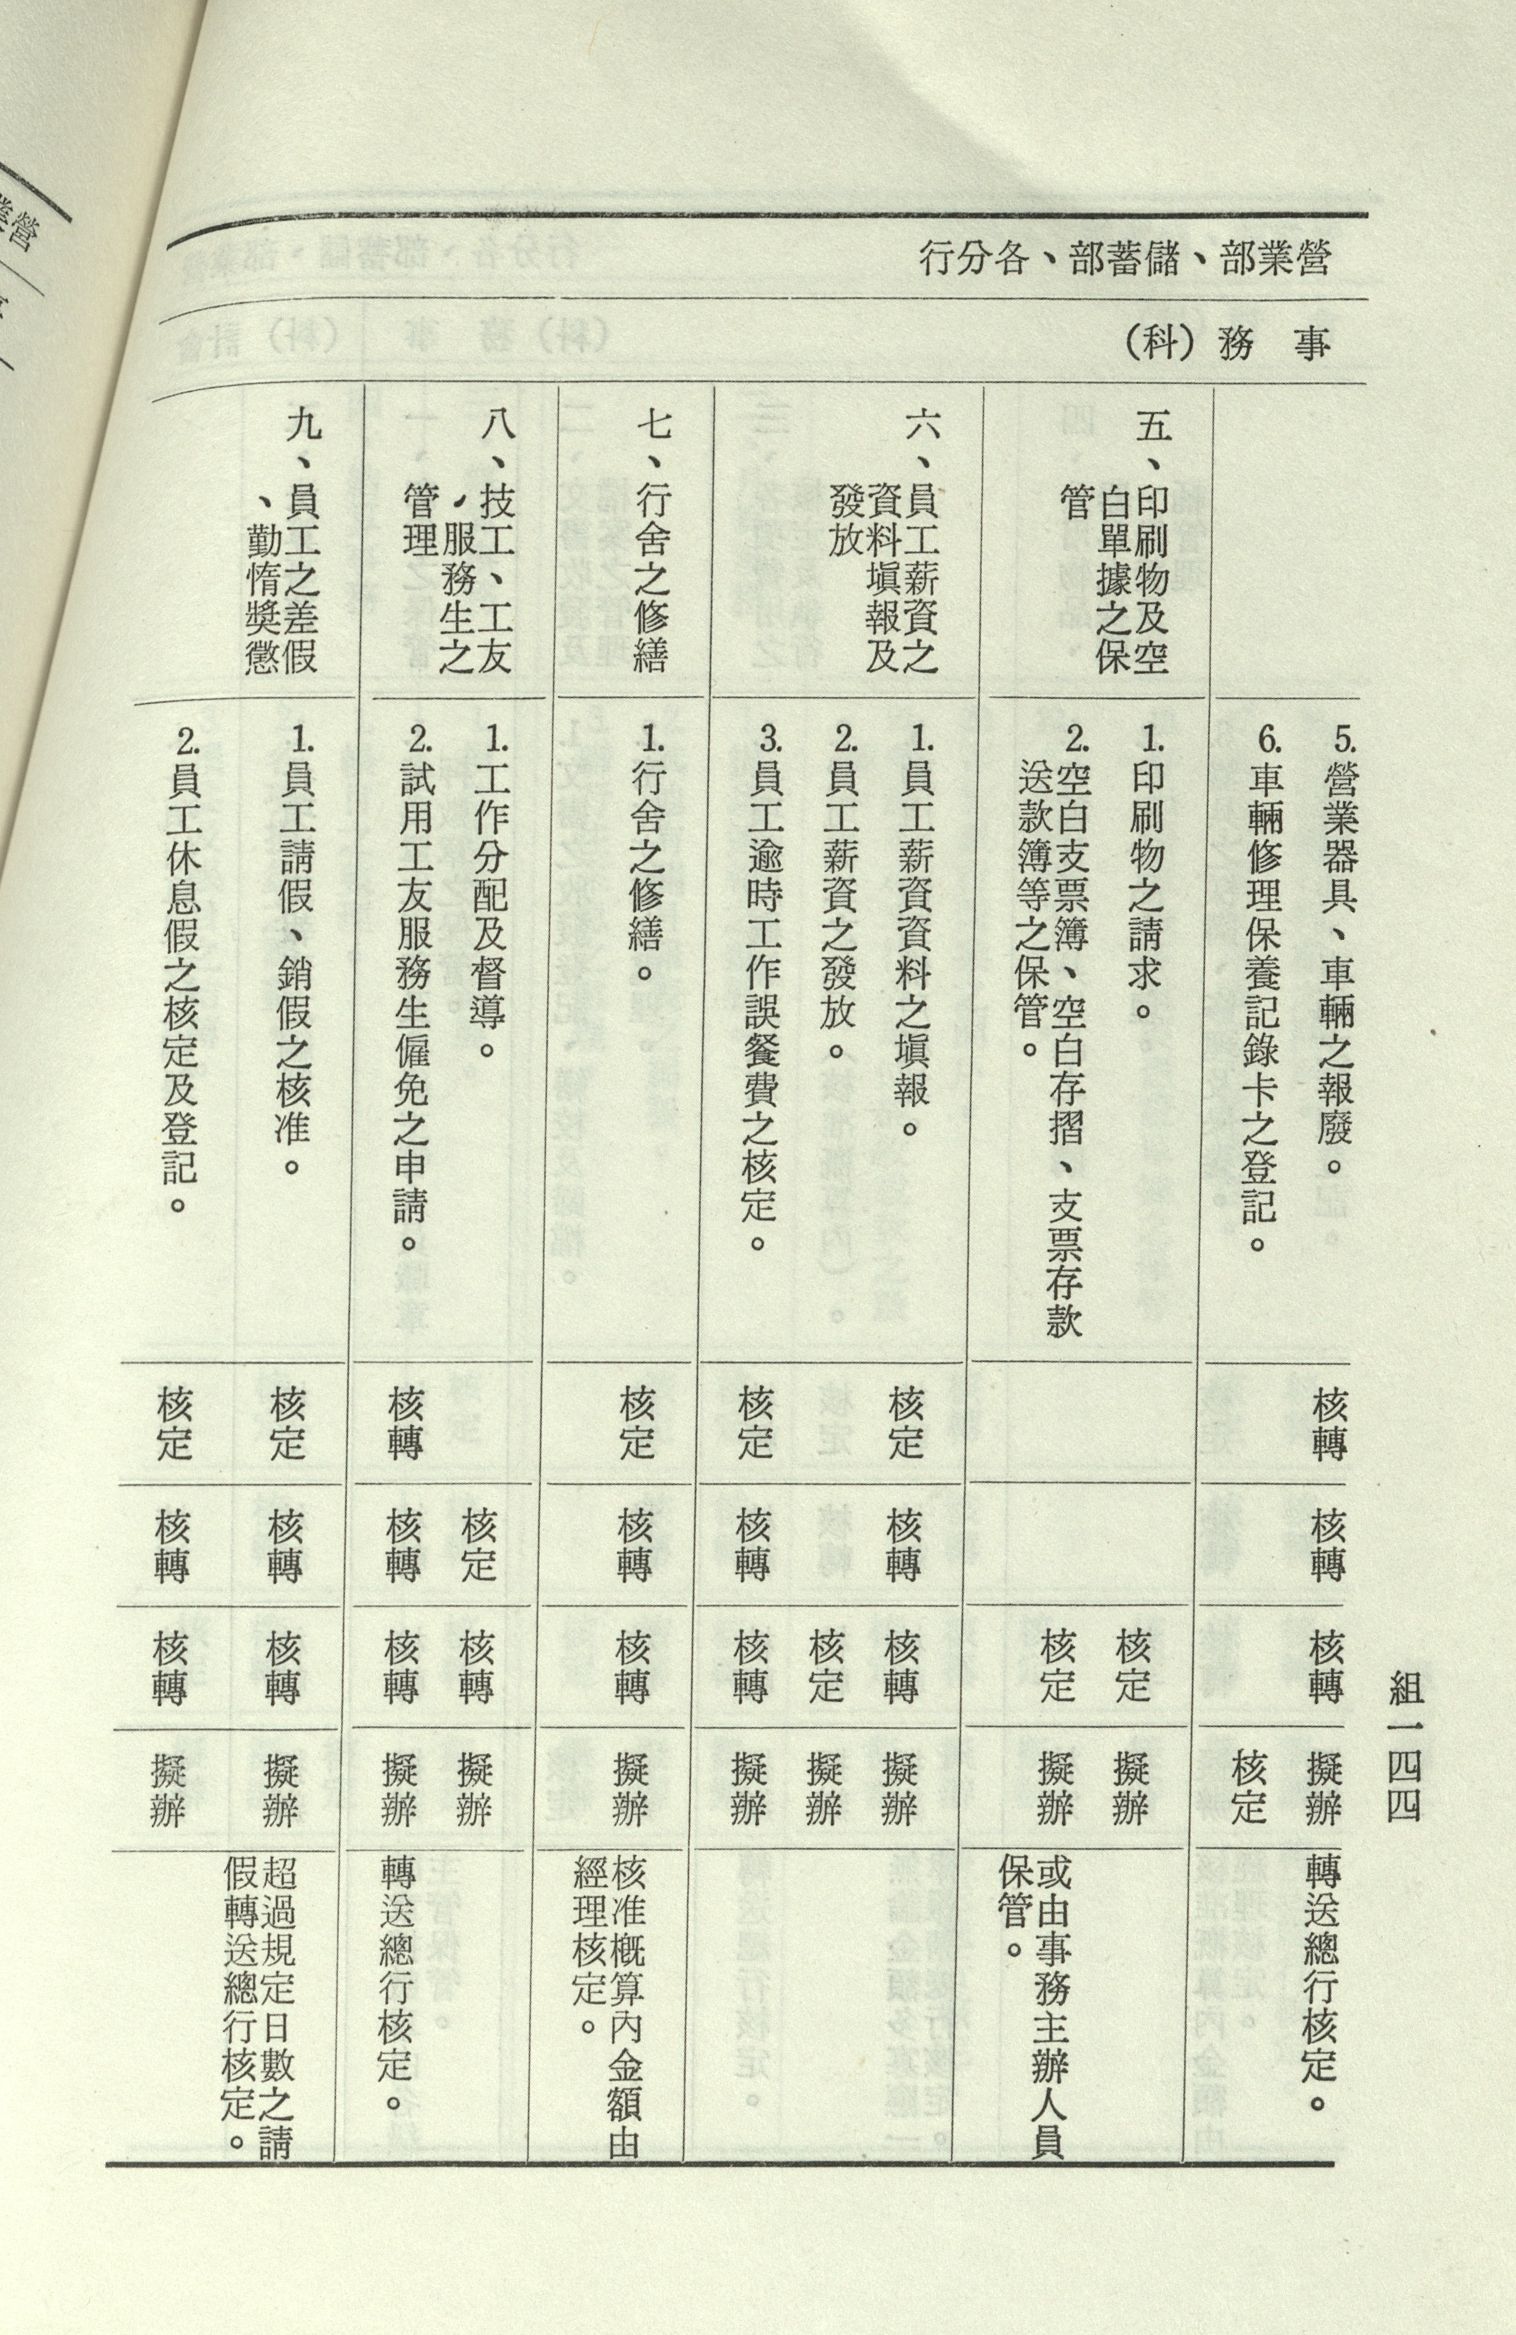 組一四四
營業部、儲蓄部、各分行
事務(科)
5.營業器具、車輛之報廢。
核轉
核轉
核轉
擬辦
轉送總行核定。
6.車輛修理保養記錄卡之登記。
核定
五、印刷物及空
白單據之保
管
1.印刷物之請求。
核定
擬辦
2.空白支票簿、空白存摺、支票存款
送款簿等之保管。
核定
擬辦
或由事務主辦人員
保管。
六、員工薪資之
資料塡報及
發放
1.員工薪資資料之塡報。
核定
核轉
核轉
擬辦
2.員工薪資之發放。
核定
擬辦
3.員工逾時工作誤餐費之核定。
核定
核轉
核轉
擬辦
七、行舍之修繕
1.行舍之修繕。
核定
核轉
核轉
擬辦
核准概算內金額由
經理核定。
八、技工、工友
，服務生之
管理
1.工作分配及督導。
核定
核轉
擬辦
2.試用工友服務生僱免之申請。
核轉
核轉
核轉
擬辦
轉送總行核定。
九、員工之差假
、勤惰獎懲
1.員工請假、銷假之核准。
核定
核轉
核轉
擬辦
超過規定日數之請
假轉送總行核定。
2.員工休息假之核定及登記。
核定
核轉
核轉
擬辦